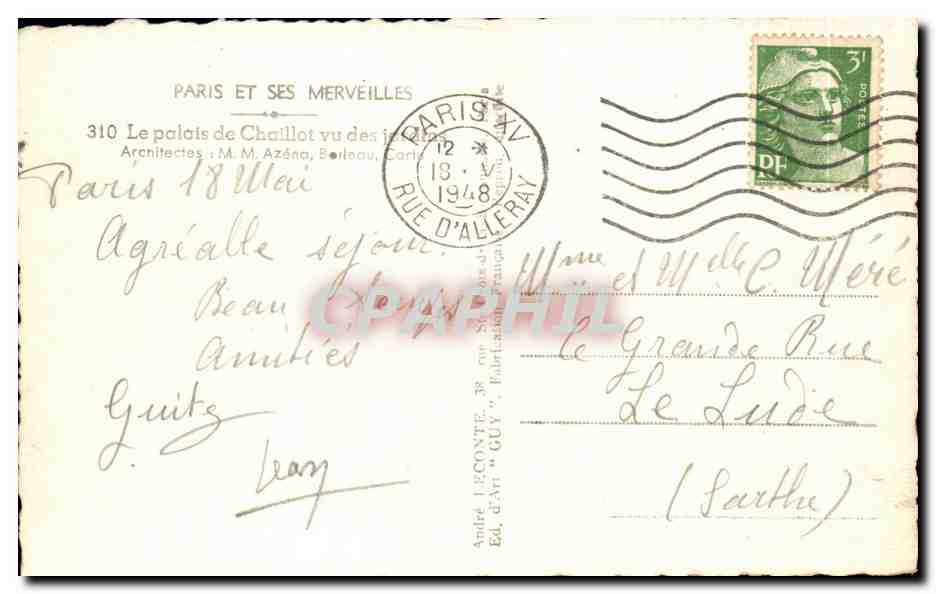 PARIS ET SES MERVEILLES
310 Le palais de Chaillot vu des jardins
Architectes : M. M. Azéna, Boileau, Carlu
Paris 18 Mai
Agréable séjour.
Beau temps
Amitiés
Jean
PARIS XV
12 *
18 · V
1948
RUE D'ALLERAY
3F
POSTES
RF
André LECONTE, 38, rue Ste-Croix-d
Ed. d'Art "GUY". Fabrication Française
Mme et Mlle C. Méré
Grande Rue
Le Lude
(Sarthe)
CPAPHIL